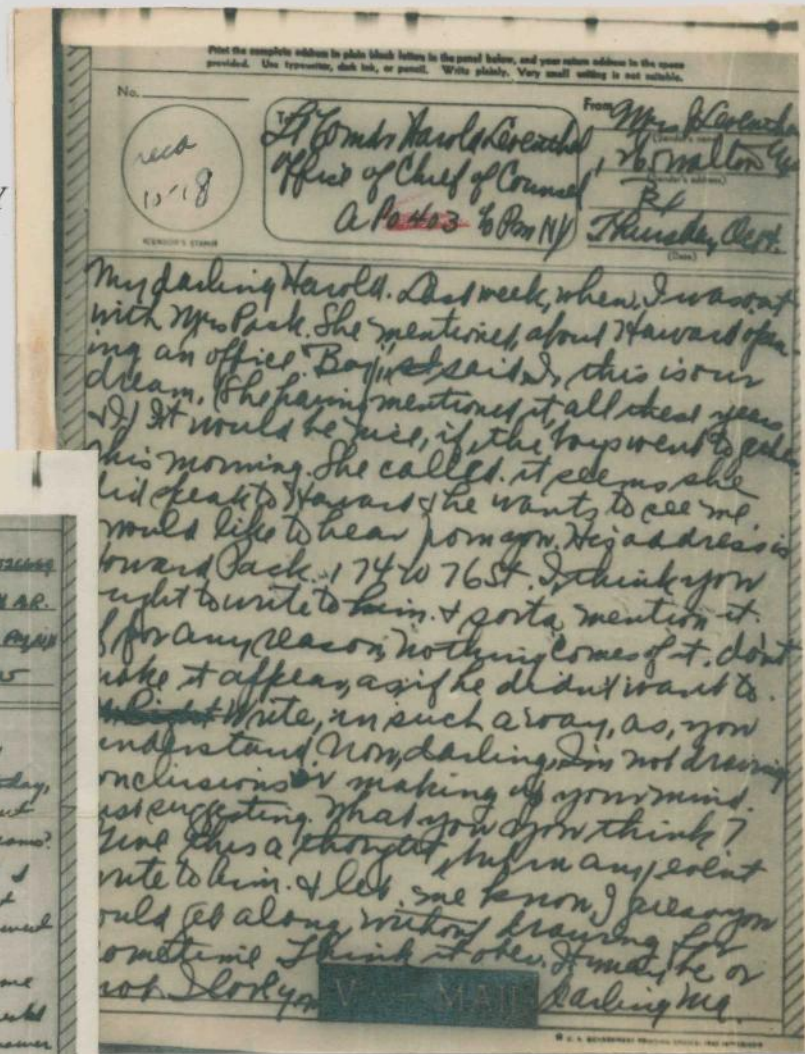 Print the complete address in plain block letters in the panel below, and your return address in the space
provided. Use typewriter, dark ink, or pencil. Write plainly. Very small writing is not suitable.
No.
To
From
Lt Comdr Harold Leventhal
Office of Chief of Counsel
A PO 403 % Pm NY
Mrs J Leventhal
(Sender's name)
Walton
(Sender's address)
Thursday Oct 4.
(Date)
recd
10-18
(CENSOR'S STAMP)
My darling Harold. Last week, when I was out
with Mrs Pack. She mentioned about Howard open
ing an office. Boy, said I, this is our
dream. (She having mentioned it, all these years
& I) It would be nice, if the boys went to gether
This morning. She called. it seems she
did speak to Howard & he wants to see me
would like to hear from you. His address is
oward Pack. 174 W 76 St. I think you
ught to write to him. & sorta mention it.
f for any reason, nothing comes of it. dont
make it appear, as if he didn't want to.
Write, in such a way, as, you
understand. Now, darling, Im not drawing
onclusions or making up your mind.
ust suggesting. What you you think?
Give this a thought, but in any event
write to him. & let me know, I guess you
ould get along without drawing for
sometime Think it over. It may be or
not. I love you darling Ma.
V MAIL
day,
me